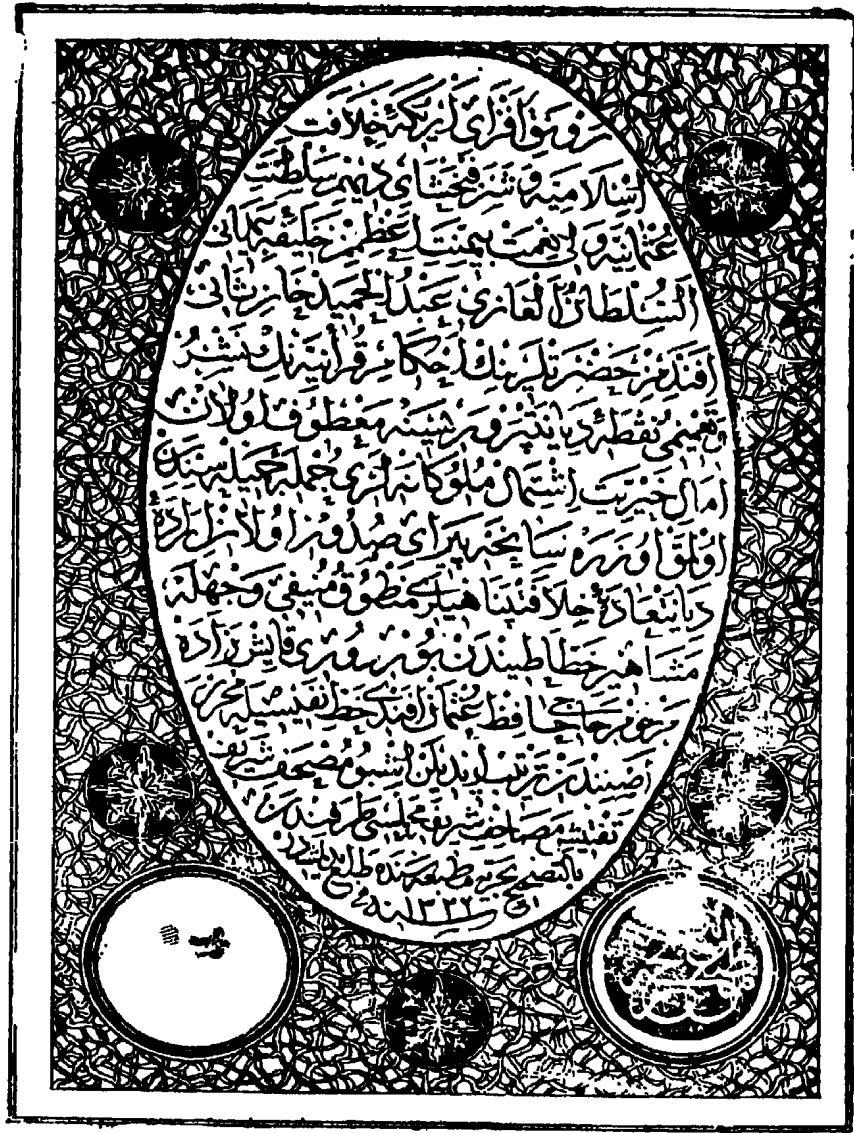 رونق افزای اریکهٔ خلافت
اسلامیه و شرفبخشای دیهیم سلطنت
عثمانیه ولی نعمت بیمنت اعظمز خلیفهٔ
السلطان الغازی عبد الحمید خان ثانی
افندمز حضرتلرینك احکام قرآنیه نك نشر
و تعمیمی نقطهٔ دیانتپرورسینه معطوف اولان
امال خیریت اشتمال ملوکانه لری جملهٔ جمیله سندن
اولمق اوزره سانحه پیرای صدور اولان ارادهٔ
دیانتعادهٔ خلافتپناهیلری منطوق منیفی وجهله
مشاهیر خطاطیندن بوردوری قایش زاده
مرحوم حاجی حافظ عثمان افندی خط نفیسیله محرر
اصلندن ترتیب اولنان اشبو مصحف شریف
تفتیش مصاحف شریفه مجلسی طرفندن
بالتصحیح بحریه مطبعه سنده طبع
فی سنه